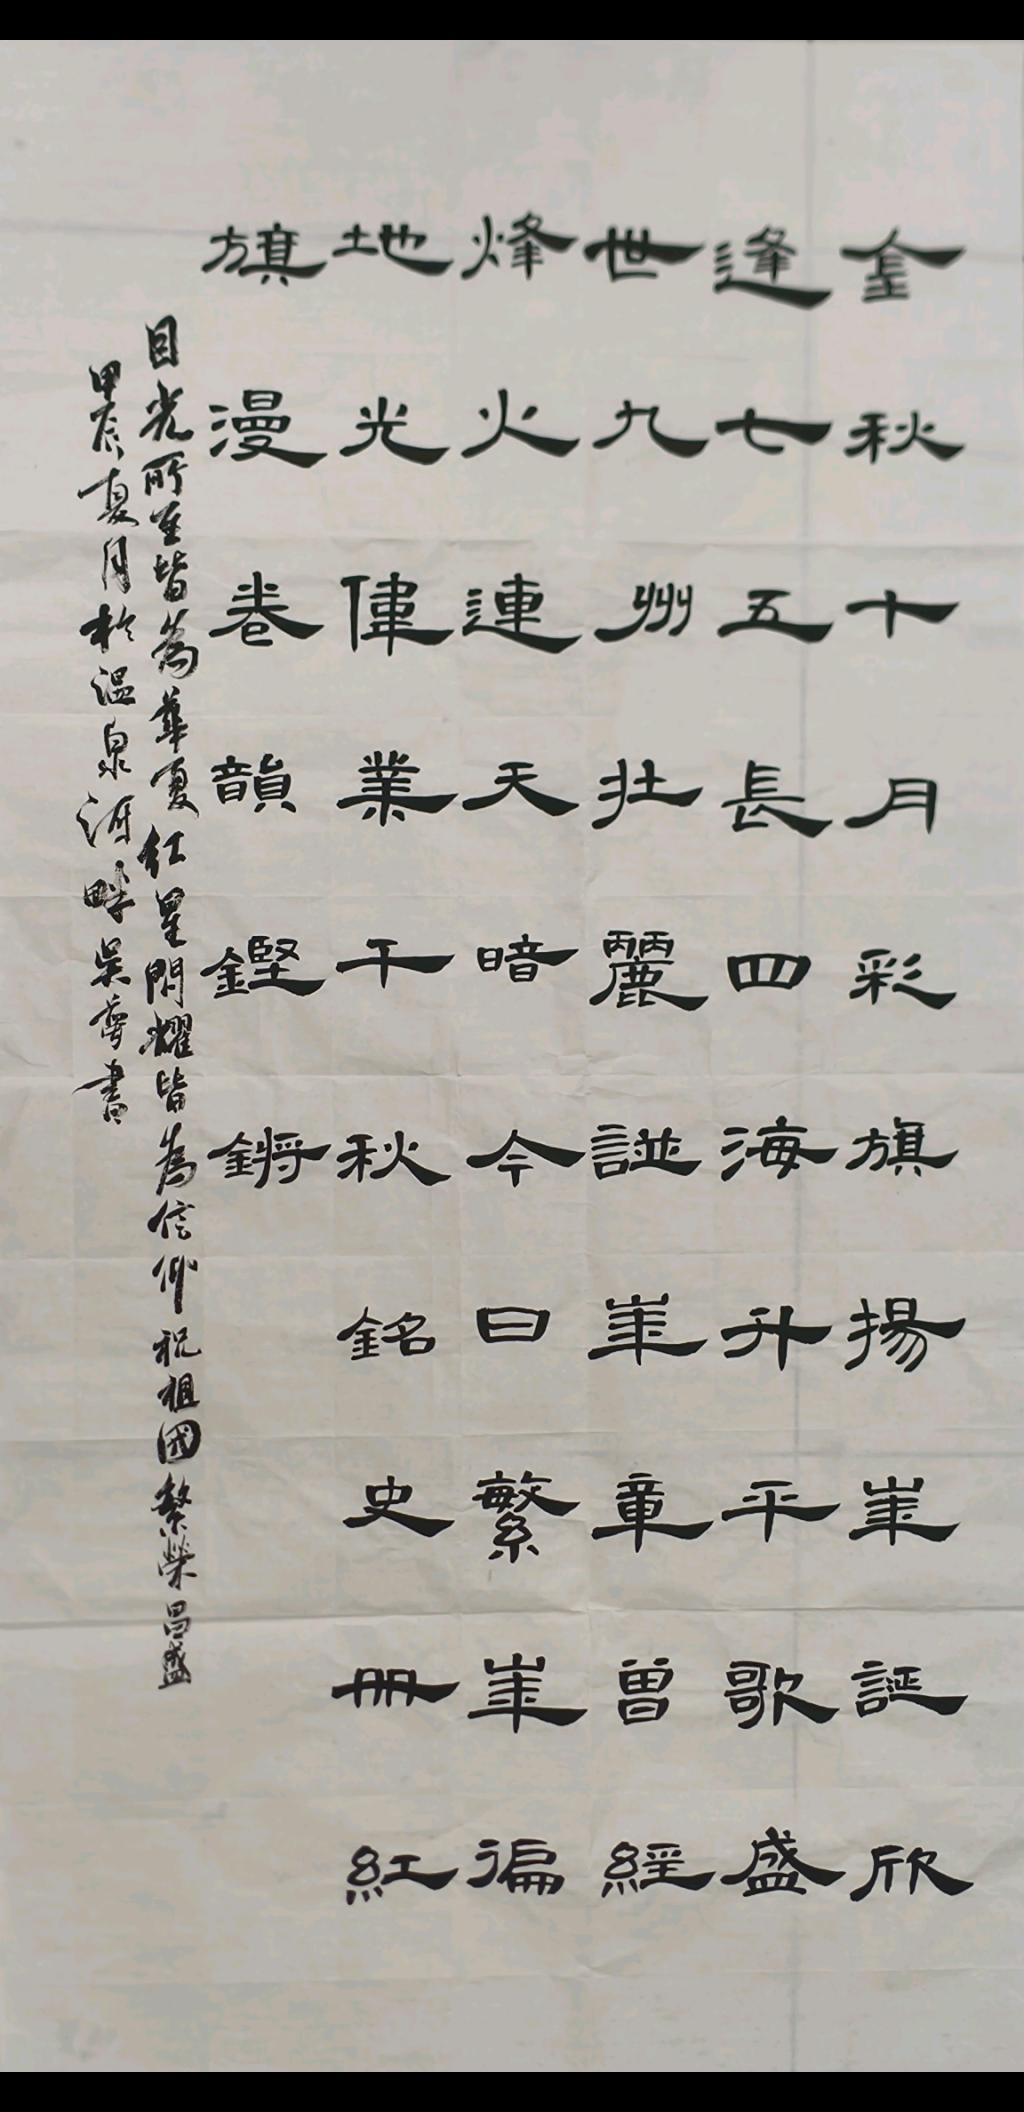 金秋十月彩旗揚崋誕欣
逢七五長四海升平歌盛
世九州壯麗譜崋章曾經
烽火連天暗今日繁崋徧
地光偉業千秋銘史册紅
旗漫卷韻鏗鏘
目光所至皆為華夏紅星閃耀皆為信仰祝祖國繁榮昌盛
甲辰夏月於温泉河畔吴書